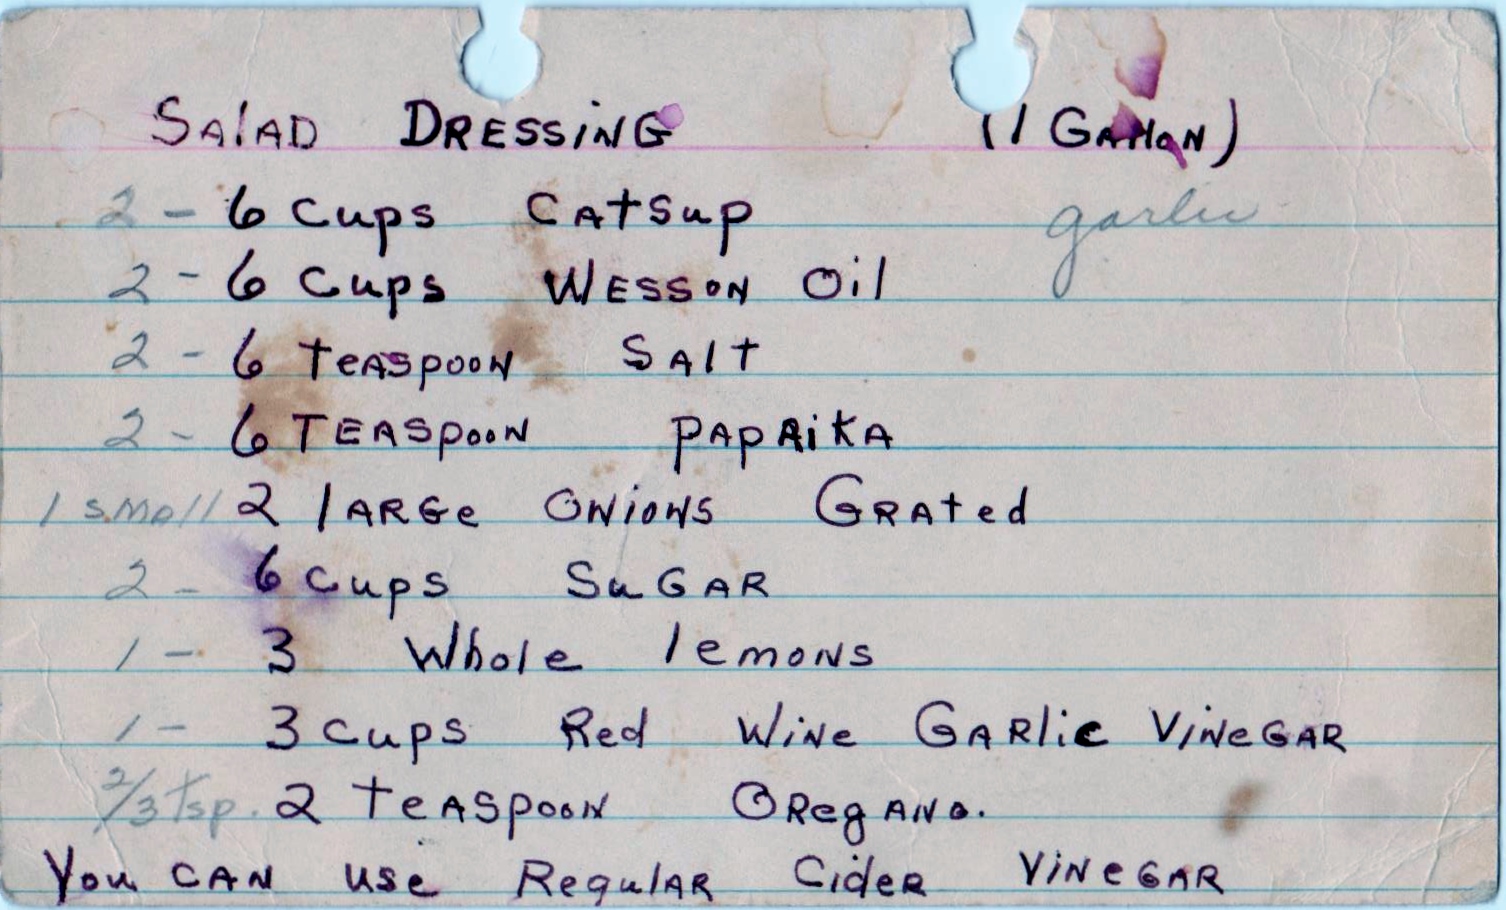 Salad Dressing (1 Gallon)
2 - 6 Cups Catsup garlic
2 - 6 Cups Wesson Oil
2 - 6 teaspoon Salt
2 - 6 Teaspoon paprika
1 small 2 large Onions Grated
2 - 6 cups Sugar
1 - 3 Whole lemons
1 - 3 cups Red Wine Garlic Vinegar
2/3 tsp. 2 teaspoon Oregano.
You can use Regular Cider Vinegar